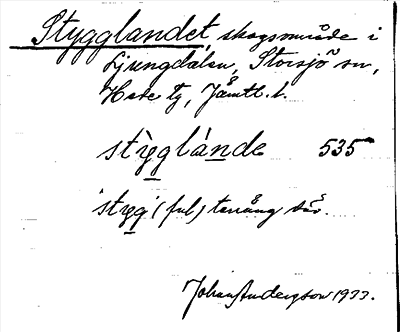 Stygglandet, skogsområde i
Ljungdalen, Storsjö sn,
Hede tg, Jämtl. l.
stỳgglánde 535
'stygg' (ful) terräng där.
Johan Anderson 1933.